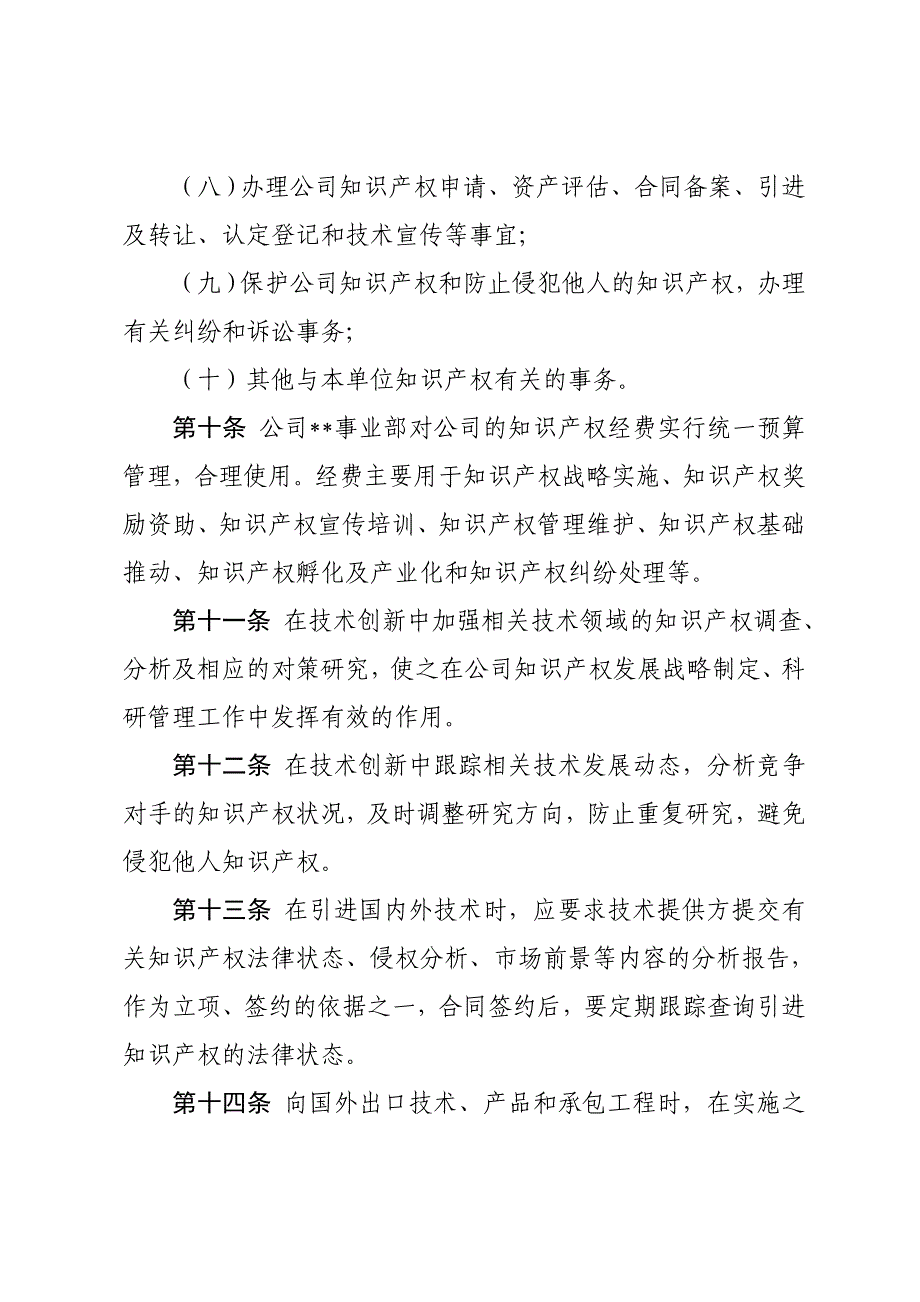 （八）办理公司知识产权申请、资产评估、合同备案、引进
及转让、认定登记和技术宣传等事宜；
（九）保护公司知识产权和防止侵犯他人的知识产权，办理
有关纠纷和诉讼事务；
（十）其他与本单位知识产权有关的事务。
第十条 公司**事业部对公司的知识产权经费实行统一预算
管理，合理使用。经费主要用于知识产权战略实施、知识产权奖
励资助、知识产权宣传培训、知识产权管理维护、知识产权基础
推动、知识产权孵化及产业化和知识产权纠纷处理等。
第十一条 在技术创新中加强相关技术领域的知识产权调查、
分析及相应的对策研究，使之在公司知识产权发展战略制定、科
研管理工作中发挥有效的作用。
第十二条 在技术创新中跟踪相关技术发展动态，分析竞争
对手的知识产权状况，及时调整研究方向，防止重复研究，避免
侵犯他人知识产权。
第十三条 在引进国内外技术时，应要求技术提供方提交有
关知识产权法律状态、侵权分析、市场前景等内容的分析报告，
作为立项、签约的依据之一，合同签约后，要定期跟踪查询引进
知识产权的法律状态。
第十四条 向国外出口技术、产品和承包工程时，在实施之